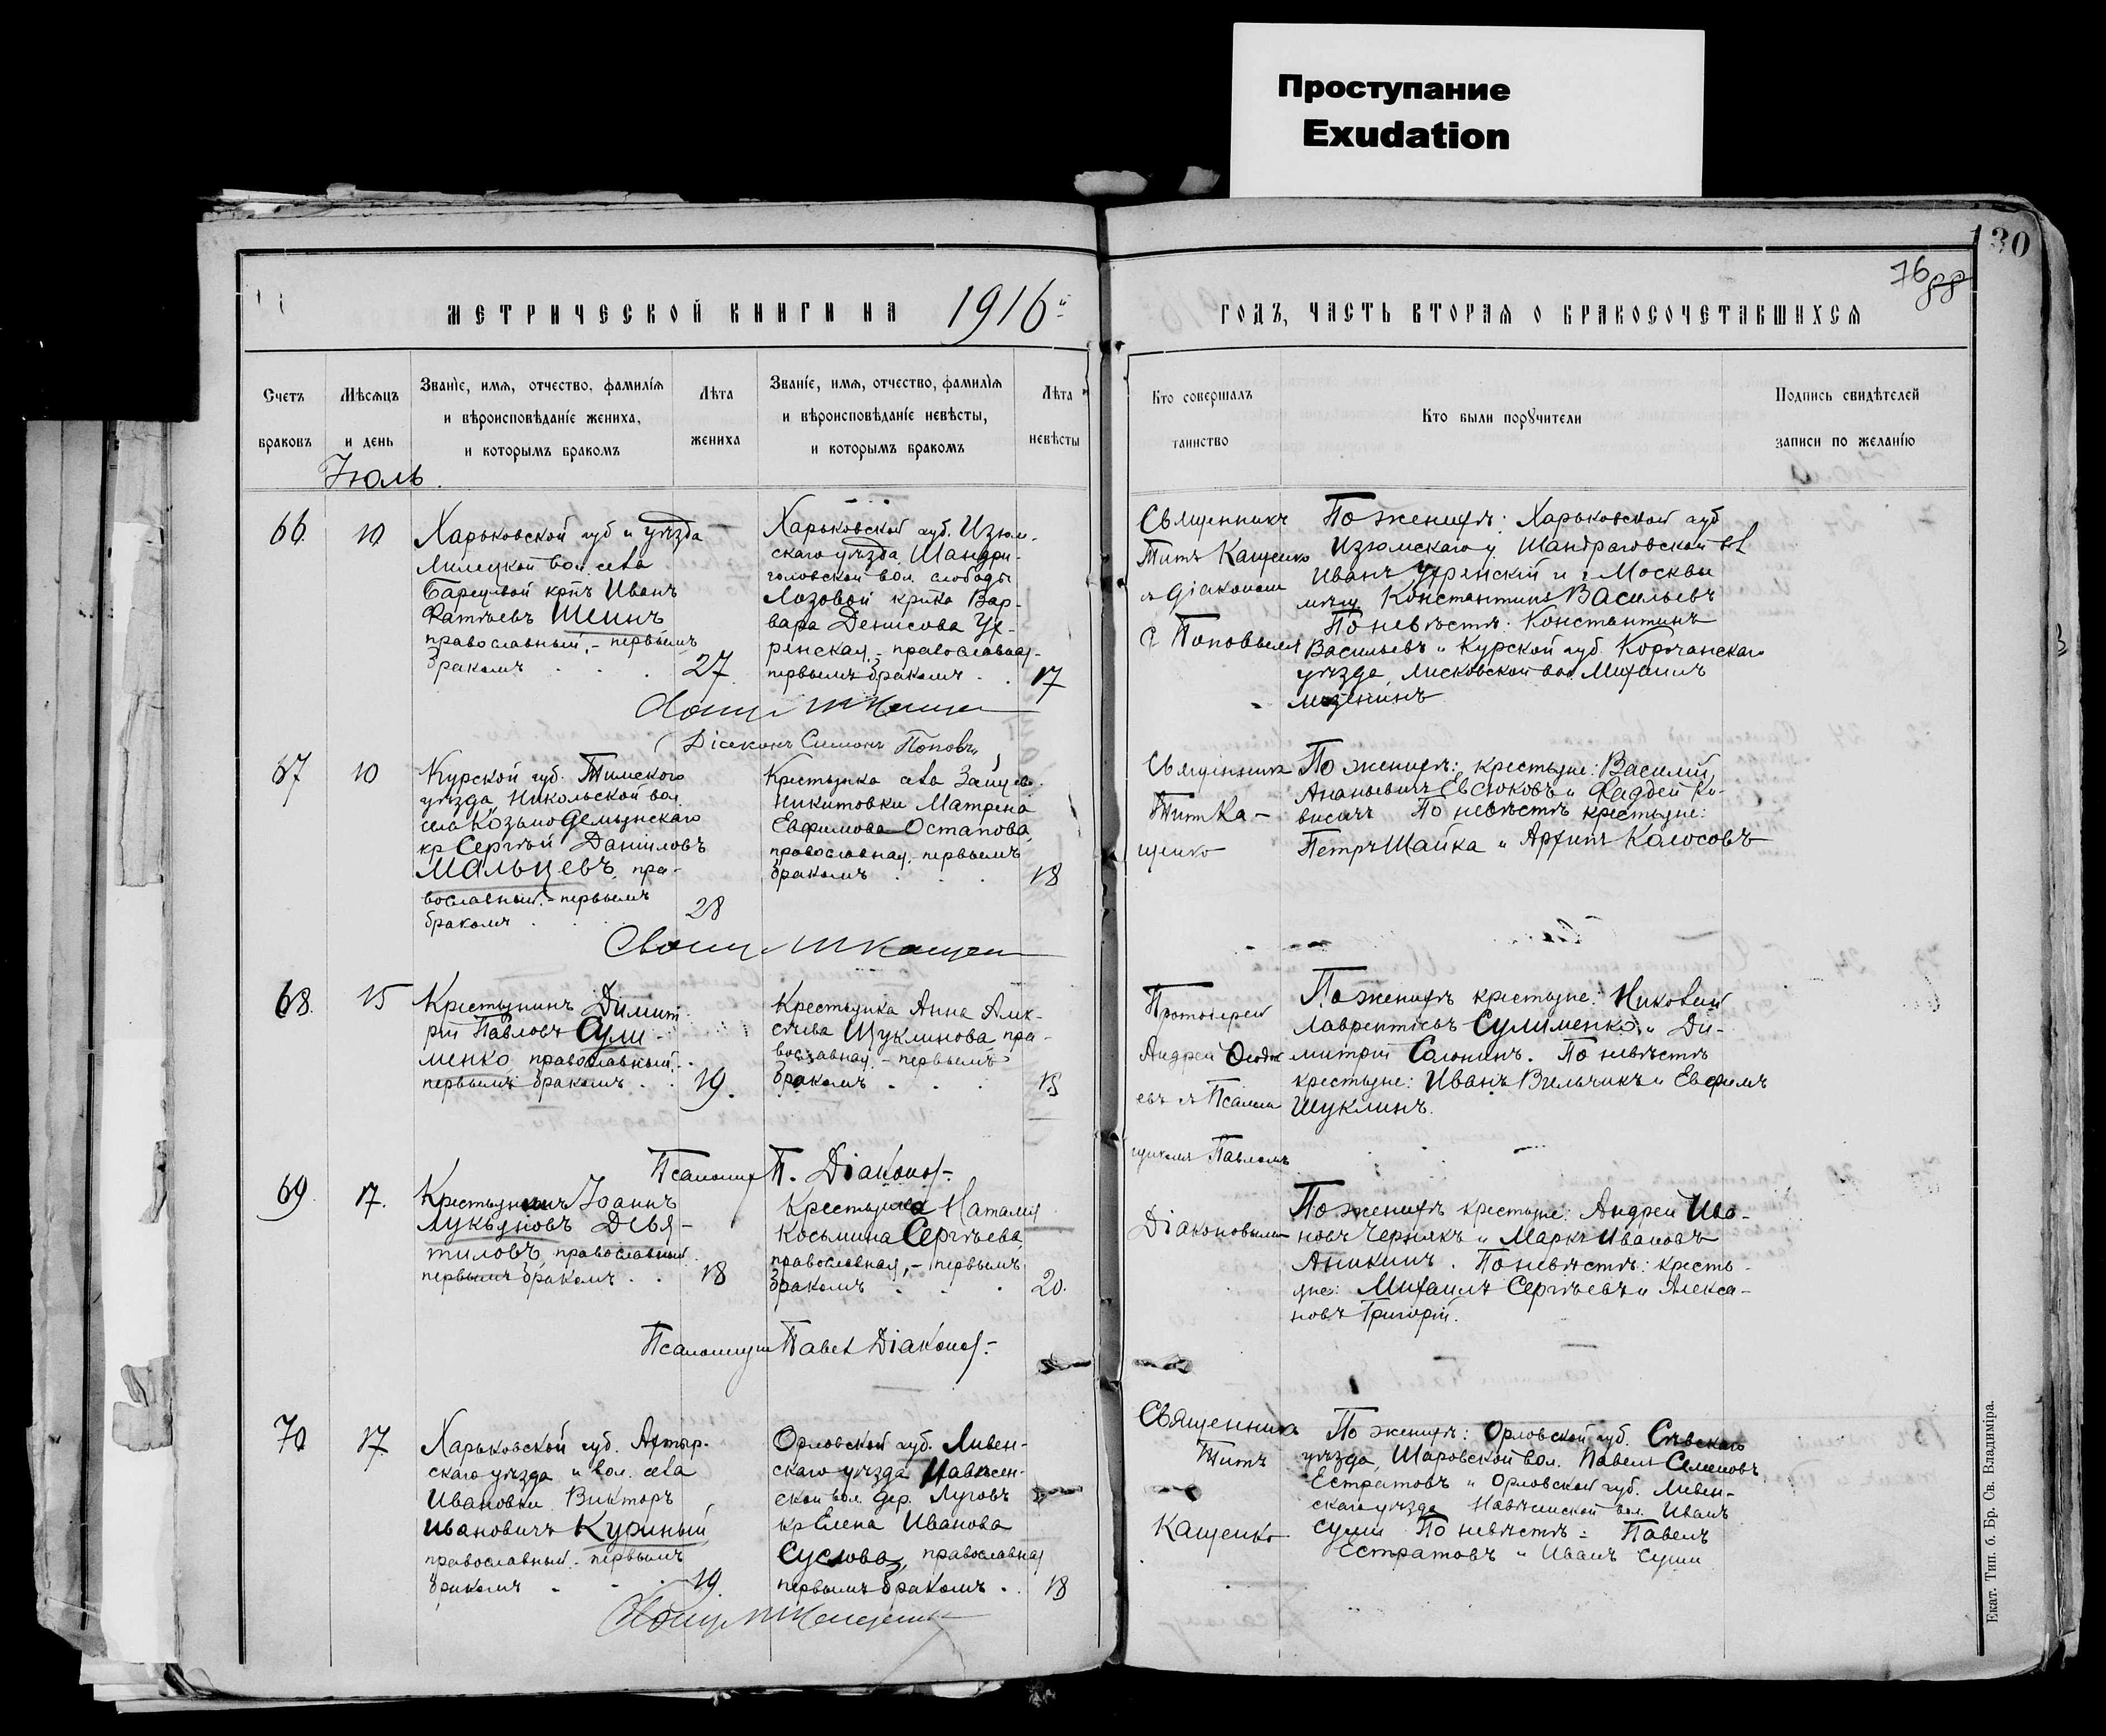 Проступание
Exudation
130
76
88
МЕТРИЧЕСКОЙ КНИГИ НА 1916й
ГОДЪ, ЧАСТЬ ВТОРАЯ О БРАКОСОЧЕТАВШИХСЯ
Счетъ
браковъ
Мѣсяцъ
и день
Званіе, имя, отчество, фамилія
и вѣроисповѣданіе жениха,
и которымъ бракомъ
Лѣта
жениха
Званіе, имя, отчество, фамилія
и вѣроисповѣданіе невѣсты,
и которымъ бракомъ
Лѣта
невѣсты
Кто совершалъ
таинство
Кто были поручители
Подпись свидѣтелей
записи по желанію
Іюль.
66.
10
Харьковской губ и уѣзда
Липецкой вол. села
крн Иванъ
Фатѣевъ Шеинъ
православный,- первымъ
бракомъ
27
Харьковской губ. Изюм-
скаго уѣзда, Шандри-
головской вол. слободы
Лозовой крнка Вар-
вара Денисова Уг-
ренская,- православная-
первымъ бракомъ
17
Священникъ
Титъ Кащенко
съ діакономъ
С Поповымъ
По женихѣ: Харьковской губ
Изюмскаго у. вол
Иванъ Угренскій и г. Москвы
мѣщ Константинъ Васильевъ
По невѣстѣ: Константинъ
Васильевъ и Курской губ. Корочанскаго
уѣзда, вол Михаилъ
Діаконъ Симонъ Поповъ
67
10
Курской губ. Тимскаго
уѣзда, Никольской вол.
села Козьмодемьянскаго
кр Сергѣй Даниловъ
Мальцевъ, пра-
вославный,- первымъ
бракомъ
28
Крестьянка села Зайцево
Никитовки Матрена
Евфимова Остапова,
православная,- первымъ
бракомъ
18
Священникъ
Титъ Ка-
щенко
По женихѣ: крестьяне: Василій,
Ананьевичъ Евсюковъ и Фаддей Ко-
По невѣстѣ крестьяне:
Петръ Шайка и Архипъ Колосовъ
68.
15
Крестьянинъ Димит-
рій Павловъ Сули-
менко, православный,-
первымъ бракомъ
19.
Крестьянка Анна Алек-
сѣева Щуклинова пра-
вославная,- первымъ
бракомъ
Протоіерей
Андрей
съ Псалом
щикомъ Павломъ
По женихѣ крестьяне: Николай
Лаврентьевъ Сулименко и Ди-
митрій Солонинъ. По невѣстѣ
крестьяне: Иванъ Вильчикъ и Евфимъ
Щуклинъ.
Псаломщ П. Діаконов-
69.
17.
Крестьянинъ Іоаннъ
Лукьяновъ Девя-
тиловъ, православный
первымъ бракомъ
18
Крестьянка Наталія
Косьмина Сергѣева
православная,- первымъ
бракомъ
20.
Діаконовымъ
По женихѣ крестьяне: Андрей Ива-
новъ Чернякъ и Маркъ Ивановъ
Аникинъ. По невѣстѣ: кресть-
яне: Михаилъ Сергѣевъ и Алекса-
новъ Григорій.
Псаломщик Павел Діаконов-
70
17.
Харьковской губ. Ахтыр-
скаго уѣзда и вол. села
Ивановки Викторъ
Ивановичъ Куриный
православный,- первымъ
бракомъ
19.
Орловской губ. Ливен-
скаго уѣзда Навѣсен-
ской вол. дер. Луговъ
кр Елена Иванова
Суслова, православная
первымъ бракомъ
18
Священникъ
Титъ
Кащенко
По женихѣ: Орловской губ. Сѣвскаго
уѣзда, Шаровской вол. Павелъ Семеновъ
Естратовъ и Орловской губ. Ливен-
скаго уѣзда Навѣсинской вол. Иванъ
По невѣстѣ: Павелъ
Естратовъ и Иванъ
Екат. Тип. б. Бр. Св. Владиміра.